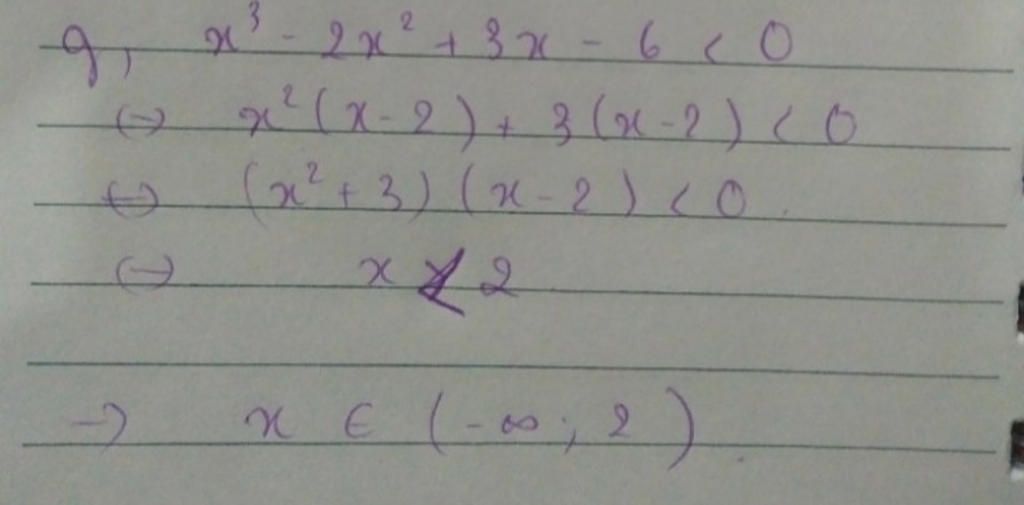 g, x³ - 2x² + 3x - 6 < 0
(-) x²(x-2) + 3(x-2) < 0
(-) (x²+3)(x-2) < 0.
(-) x < 2
-) x ∈ (-∞; 2).